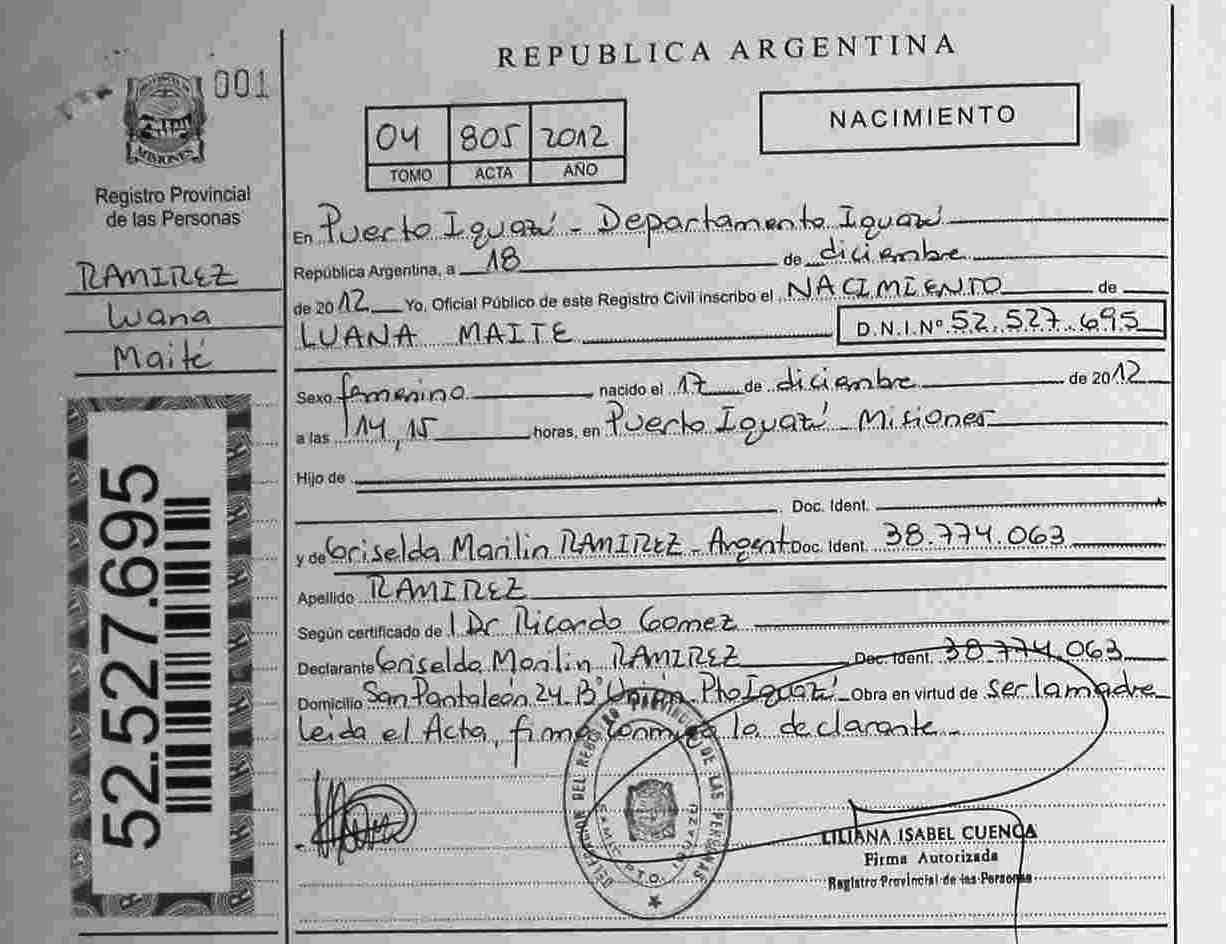 REPUBLICA ARGENTINA
001
MISIONES
Registro Provincial
de las Personas
RAMIREZ
Luana
Maité
52.527.695
04 805 2012
TOMO ACTA AÑO
NACIMIENTO
En Puerto Iguazú - Departamento Iguazú
República Argentina, a 18 de diciembre
de 2012 Yo, Oficial Público de este Registro Civil inscribo el NACIMIENTO de
LUANA MAITE D.N.I.Nº 52.527.695
Sexo femenino nacido el 17 de diciembre de 2012
a las 14,15 horas, en Puerto Iguazú Misiones
Hijo de
Doc. Ident.
y de Griselda Marilin RAMIREZ - Argent Doc. Ident. 38.774.063
Apellido RAMIREZ
Según certificado de Dr Ricardo Gomez
Declarante Griselda Marilin RAMIREZ Doc. Ident. 38.774.063
Domicilio San Pantaleón 24 Bº Unión Pto Iguazú Obra en virtud de ser la madre
leida el Acta, firma conmigo la declarante.
DELEGACION DEL REGISTRO PROVINCIAL DE LAS PERSONAS
LILIANA ISABEL CUENCA
Firma Autorizada
Registro Provincial de las Personas